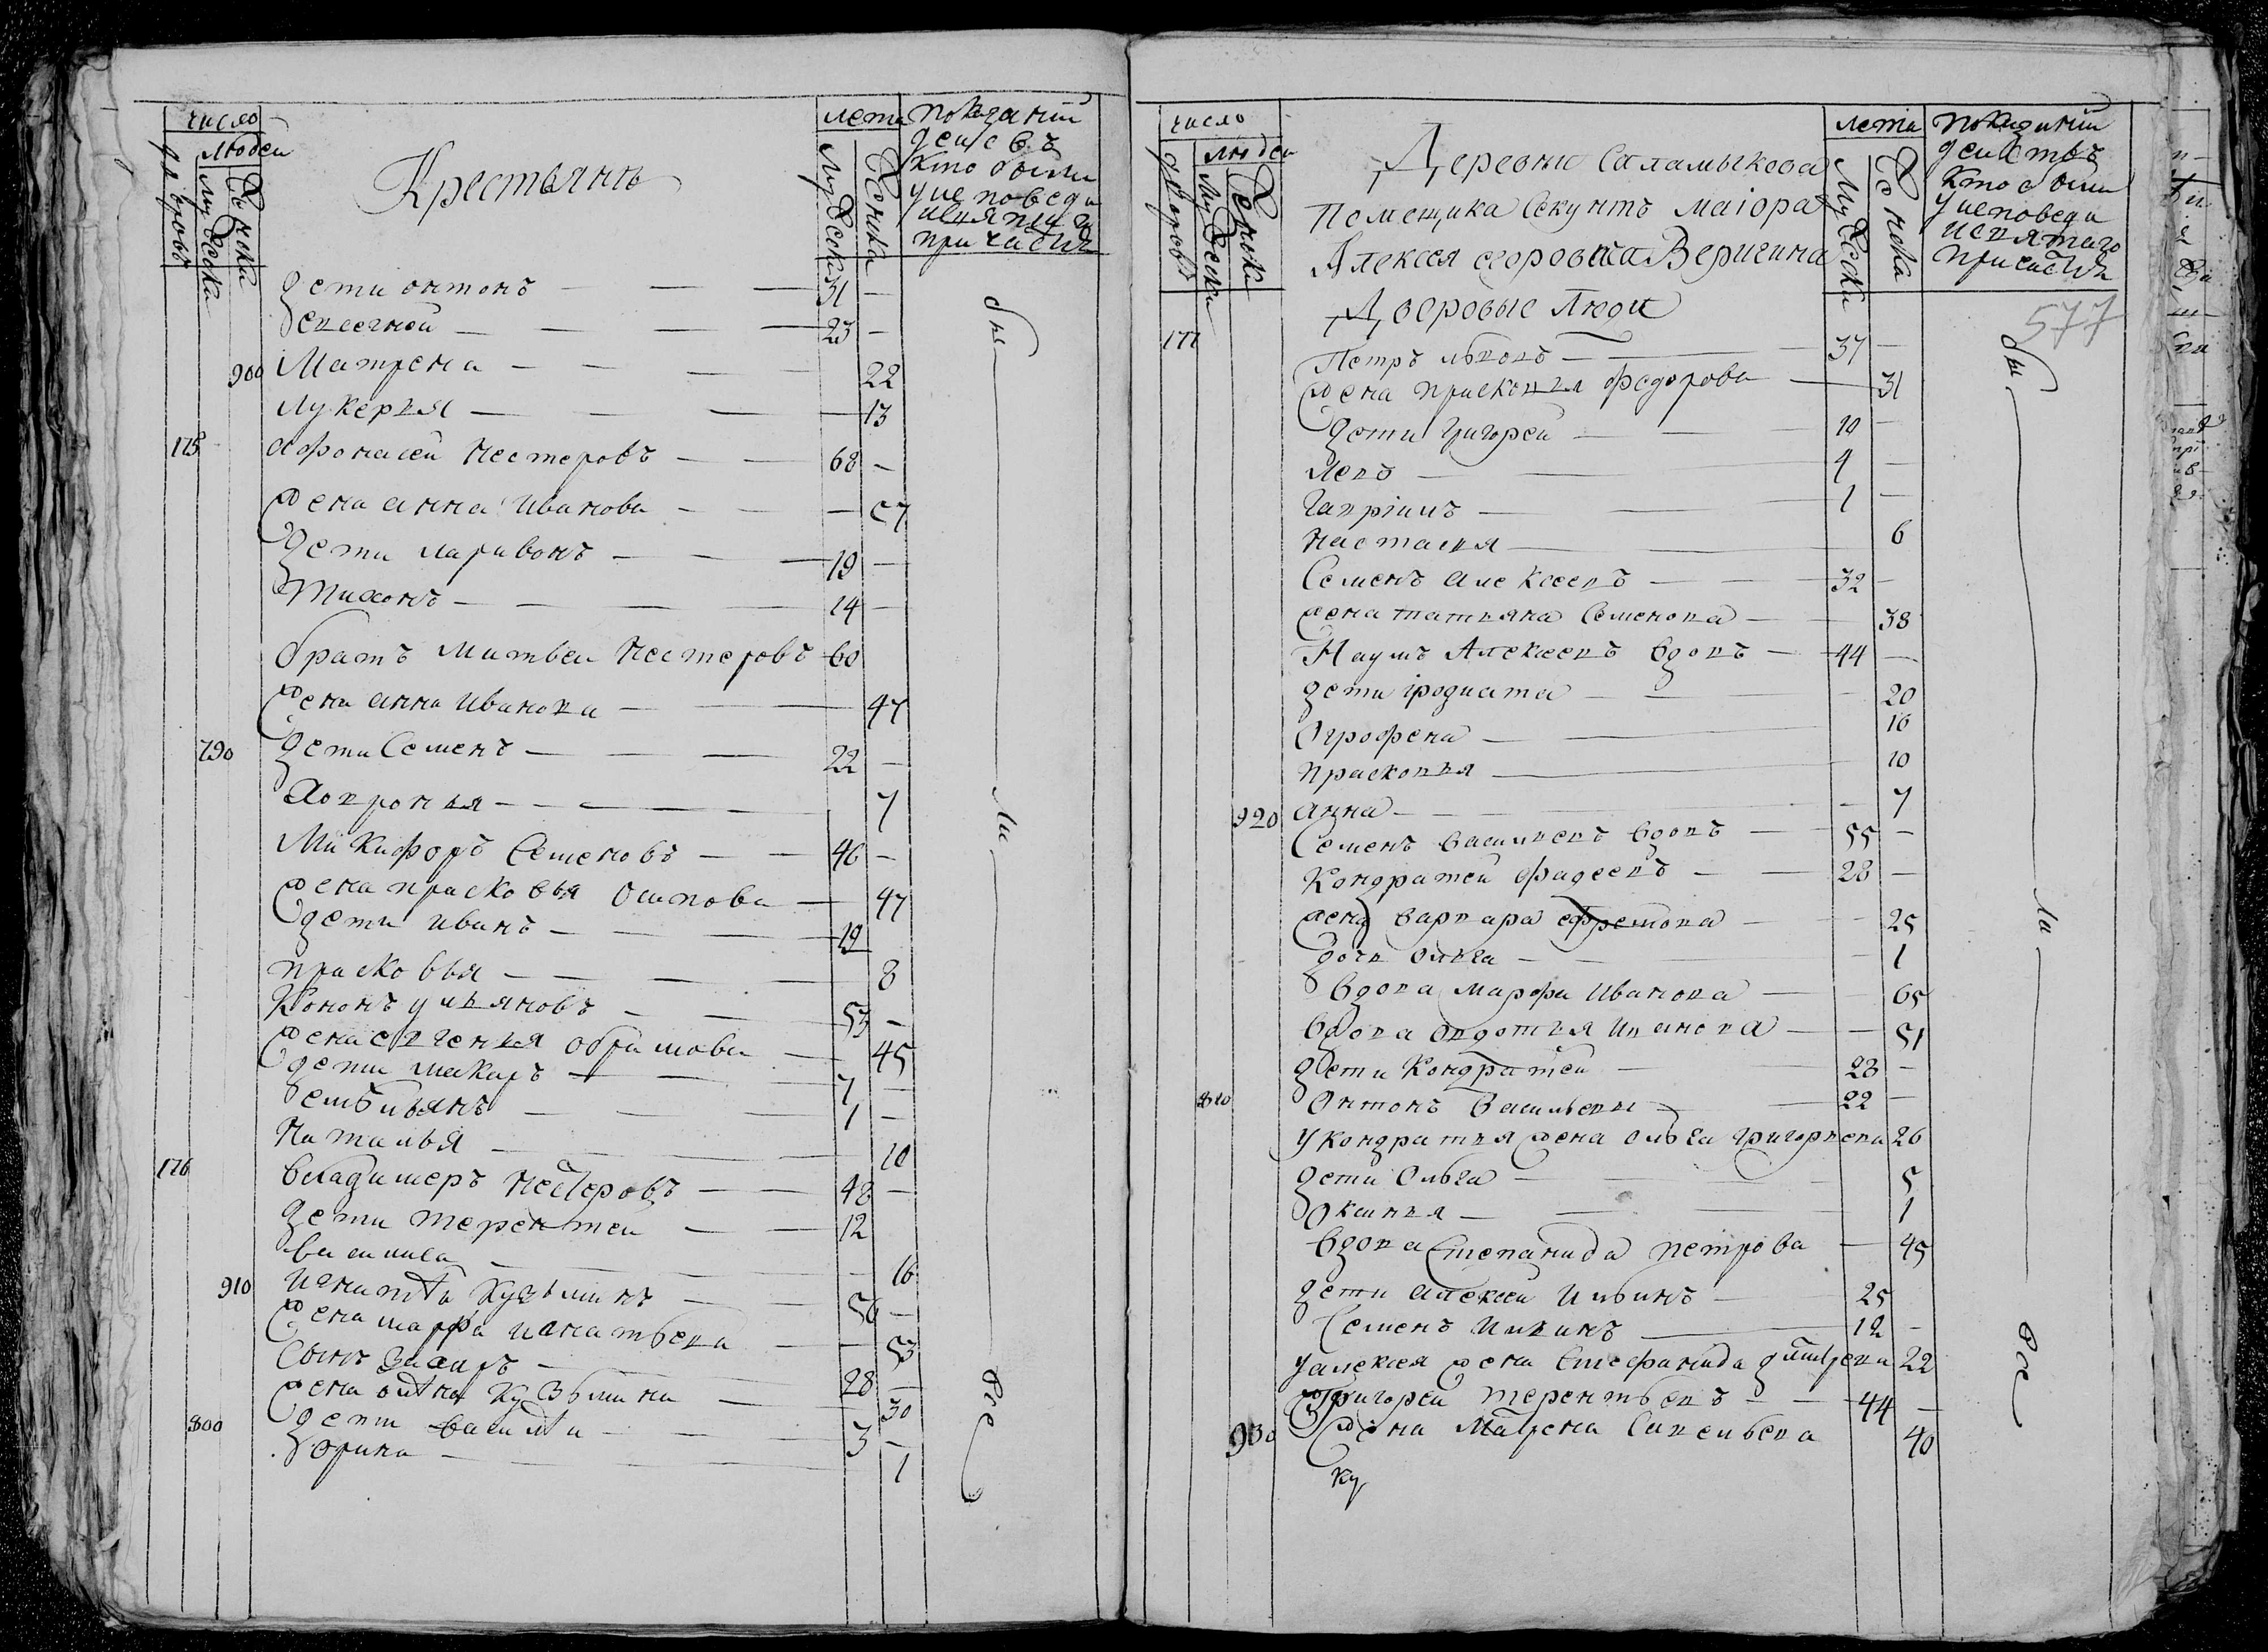 число
людей
дворовъ
мужеска
женска
Крестьянъ
лета
мужеска
женска
показаний
действъ
кто были
у исповеди
и святаго
причастия
дети антонъ — 31 —
евсегней — 23 —
900 Матрена — 22
лукерья — 13
175 афонасей нестеровъ — 68 —
жена анна иванова — 57
дети ларивонъ — 19 —
Тихонъ — 14 —
братъ матвеи нестеровъ 60
жена анна иванова — 47
790 дети Семенъ — 22 —
Ховронья — 7
Микифоръ Семеновъ — 46 —
жена прасковья осипова — 47
дети иванъ — 19
прасковья — 8
Кононъ ульяновъ — 53 —
жена евгенья абрамова — 45
дети макаръ — 7 —
емельянъ — 1 —
наталья — 10
176 владимеръ нестеровъ — 48 —
дети терентей — 12
василиса — 16
910 игнатей кузьминъ — 56 —
жена марфа игнатьева — 53
сынъ захаръ — 28 —
жена анна кузьмина — 30
800 дети василей — 3 —
орина — 1
были все
число
людей
дворовъ
мужеска
женска
Деревни Саламыкова
Помещика Секунтъ маіора
Алексея егоровича Веригина
Дворовые Люди
лета
мужеска
женска
показаний
действъ
кто были
у исповеди
и святаго
причастия
577
177
Петръ львовъ — 37 —
жена прасковья федорова — 31
дети григорей — 10 —
левъ — 4 —
гавріилъ — 1 —
настасья — 6
Семенъ алексеевъ — 32 —
жена татьяна Семенова — 38
Наумъ Алексеевъ вдовъ — 44 —
дети іродиата — 20
Огрофена — 16
прасковья — 10
920 анна — 7
Семенъ васильевъ вдовъ — 55 —
Кондратей фадеевъ — 28 —
жена варвара ефремова — 25
дочь ольга — 1
вдова марфа иванова — 65
вдова авдотья иванова — 51
дети Кондратей — 28 —
810 Антонъ васильевы — 22 —
у кондратья жена ольга григорьева 26
дети ольга — 5
Оксинья — 1
вдова Степанида петрова — 45
дети алексей ильинъ — 25
Семенъ ильинъ — 12 —
у алексея жена Стефанида дмитрева 22
григорей терентьевъ — 44 —
930 жена Матрена Савельева 40
ку
были все